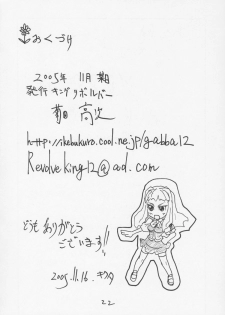 おくづけ
2005年 11月 某日
発行 キングリボルバー
菊田 高次
http://ikebukuro.cool.ne.jp/gabba12
Revolveking12@aol.com
どうもありがとう
ございます!!
2005.11.16. キクタ
22